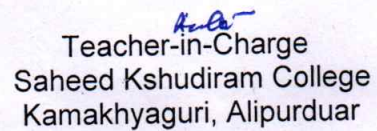 Teacher-in-Charge
Saheed Kshudiram College
Kamakhyaguri, Alipurduar